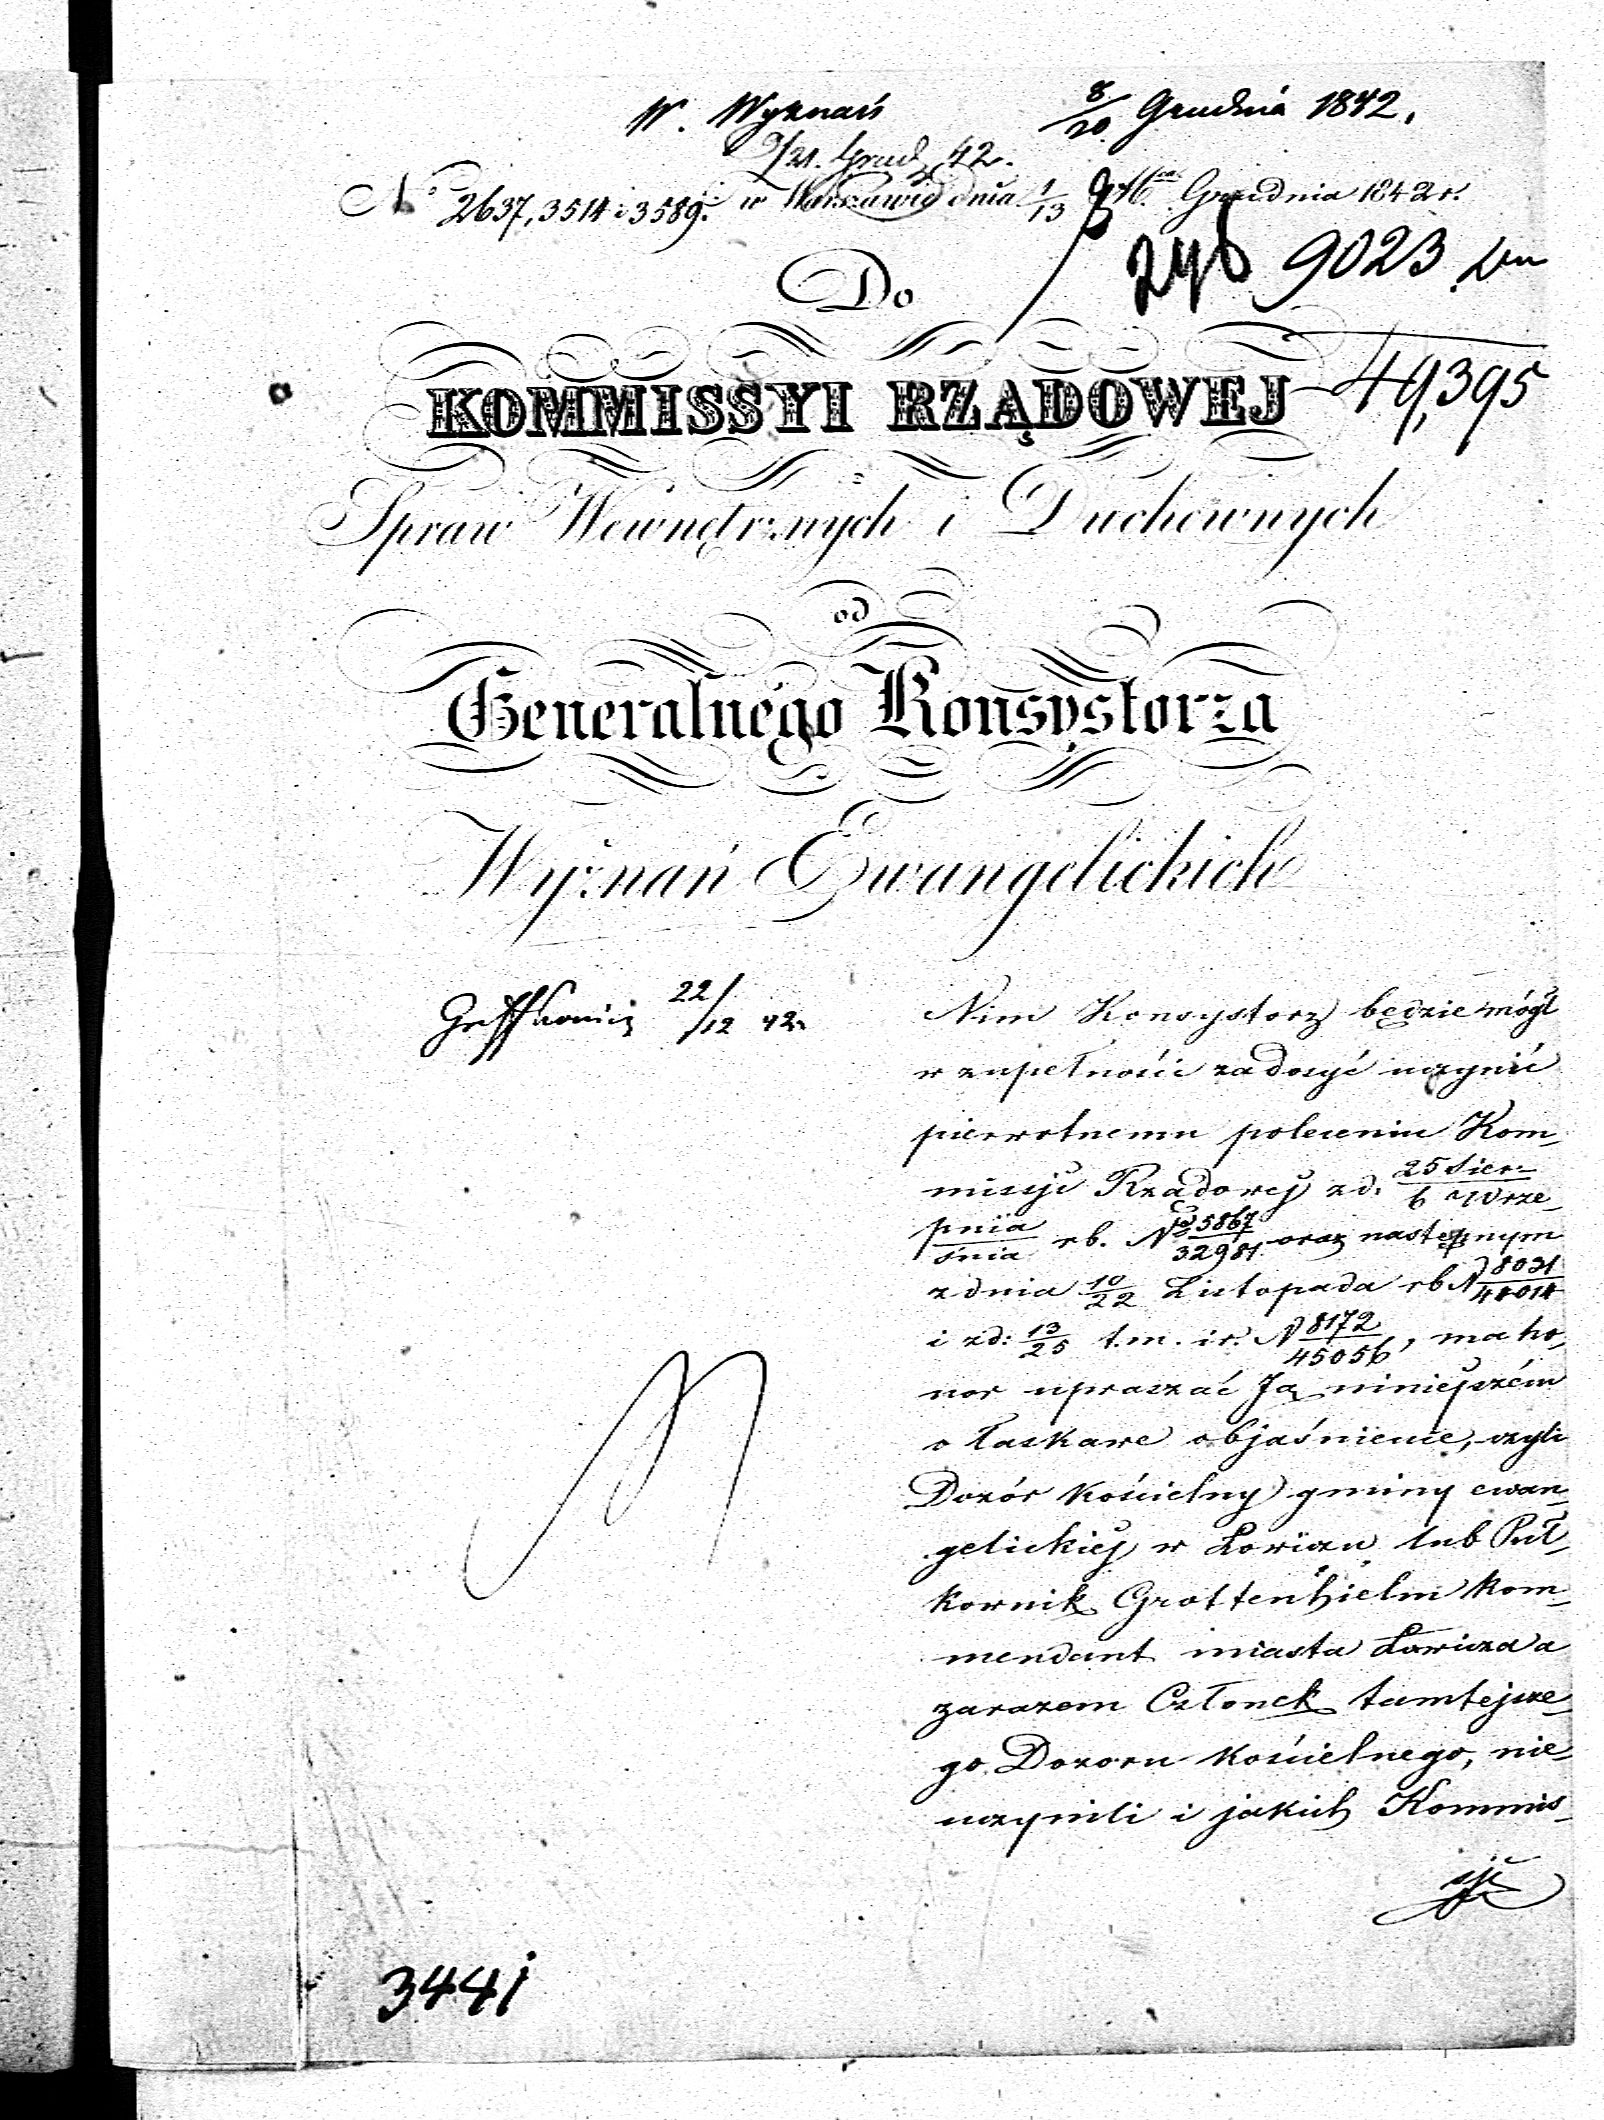 W. Wyznań 8/20 Grudnia 1842.
9/21. Grud. 42.
No 2637, 3514 i 3589. w Warszawie dnia 1/13 Mca Grudnia 1842 r.
246 9023
Do
49,395
KOMMISSYI RZĄDOWEJ
Spraw Wewnętrznych i Duchownych
od
Generalnego Konsystorza
Wyznań Ewangelickich
22/12 42.
Nim Konsystorz będzie mógł
w zupełności zadosyć uczynić
pierwotnemu poleceniu Kom-
missyi Rządowej z d. 25 Sier-/6 Wrze-
pnia/śnia rb. No 5867/32981 oraz następnym
z dnia 10/22 Listopada rb N 8031/44014
i z d: 13/25 t.m. i r. N 8172/45056, ma ho-
nor upraszać Ją niniejszém
o łaskawe objaśnienie, czyli
Dozór Kościelny gminy ewan-
gelickiej w Łowiczu lub Puł-
kownik Grottenhielm Kom-
mendant miasta Łowicza a
zarazem Członek tamtejsze-
go Dozoru Kościelnego, nie-
uczynili i jakich Kommis-
syi
3441